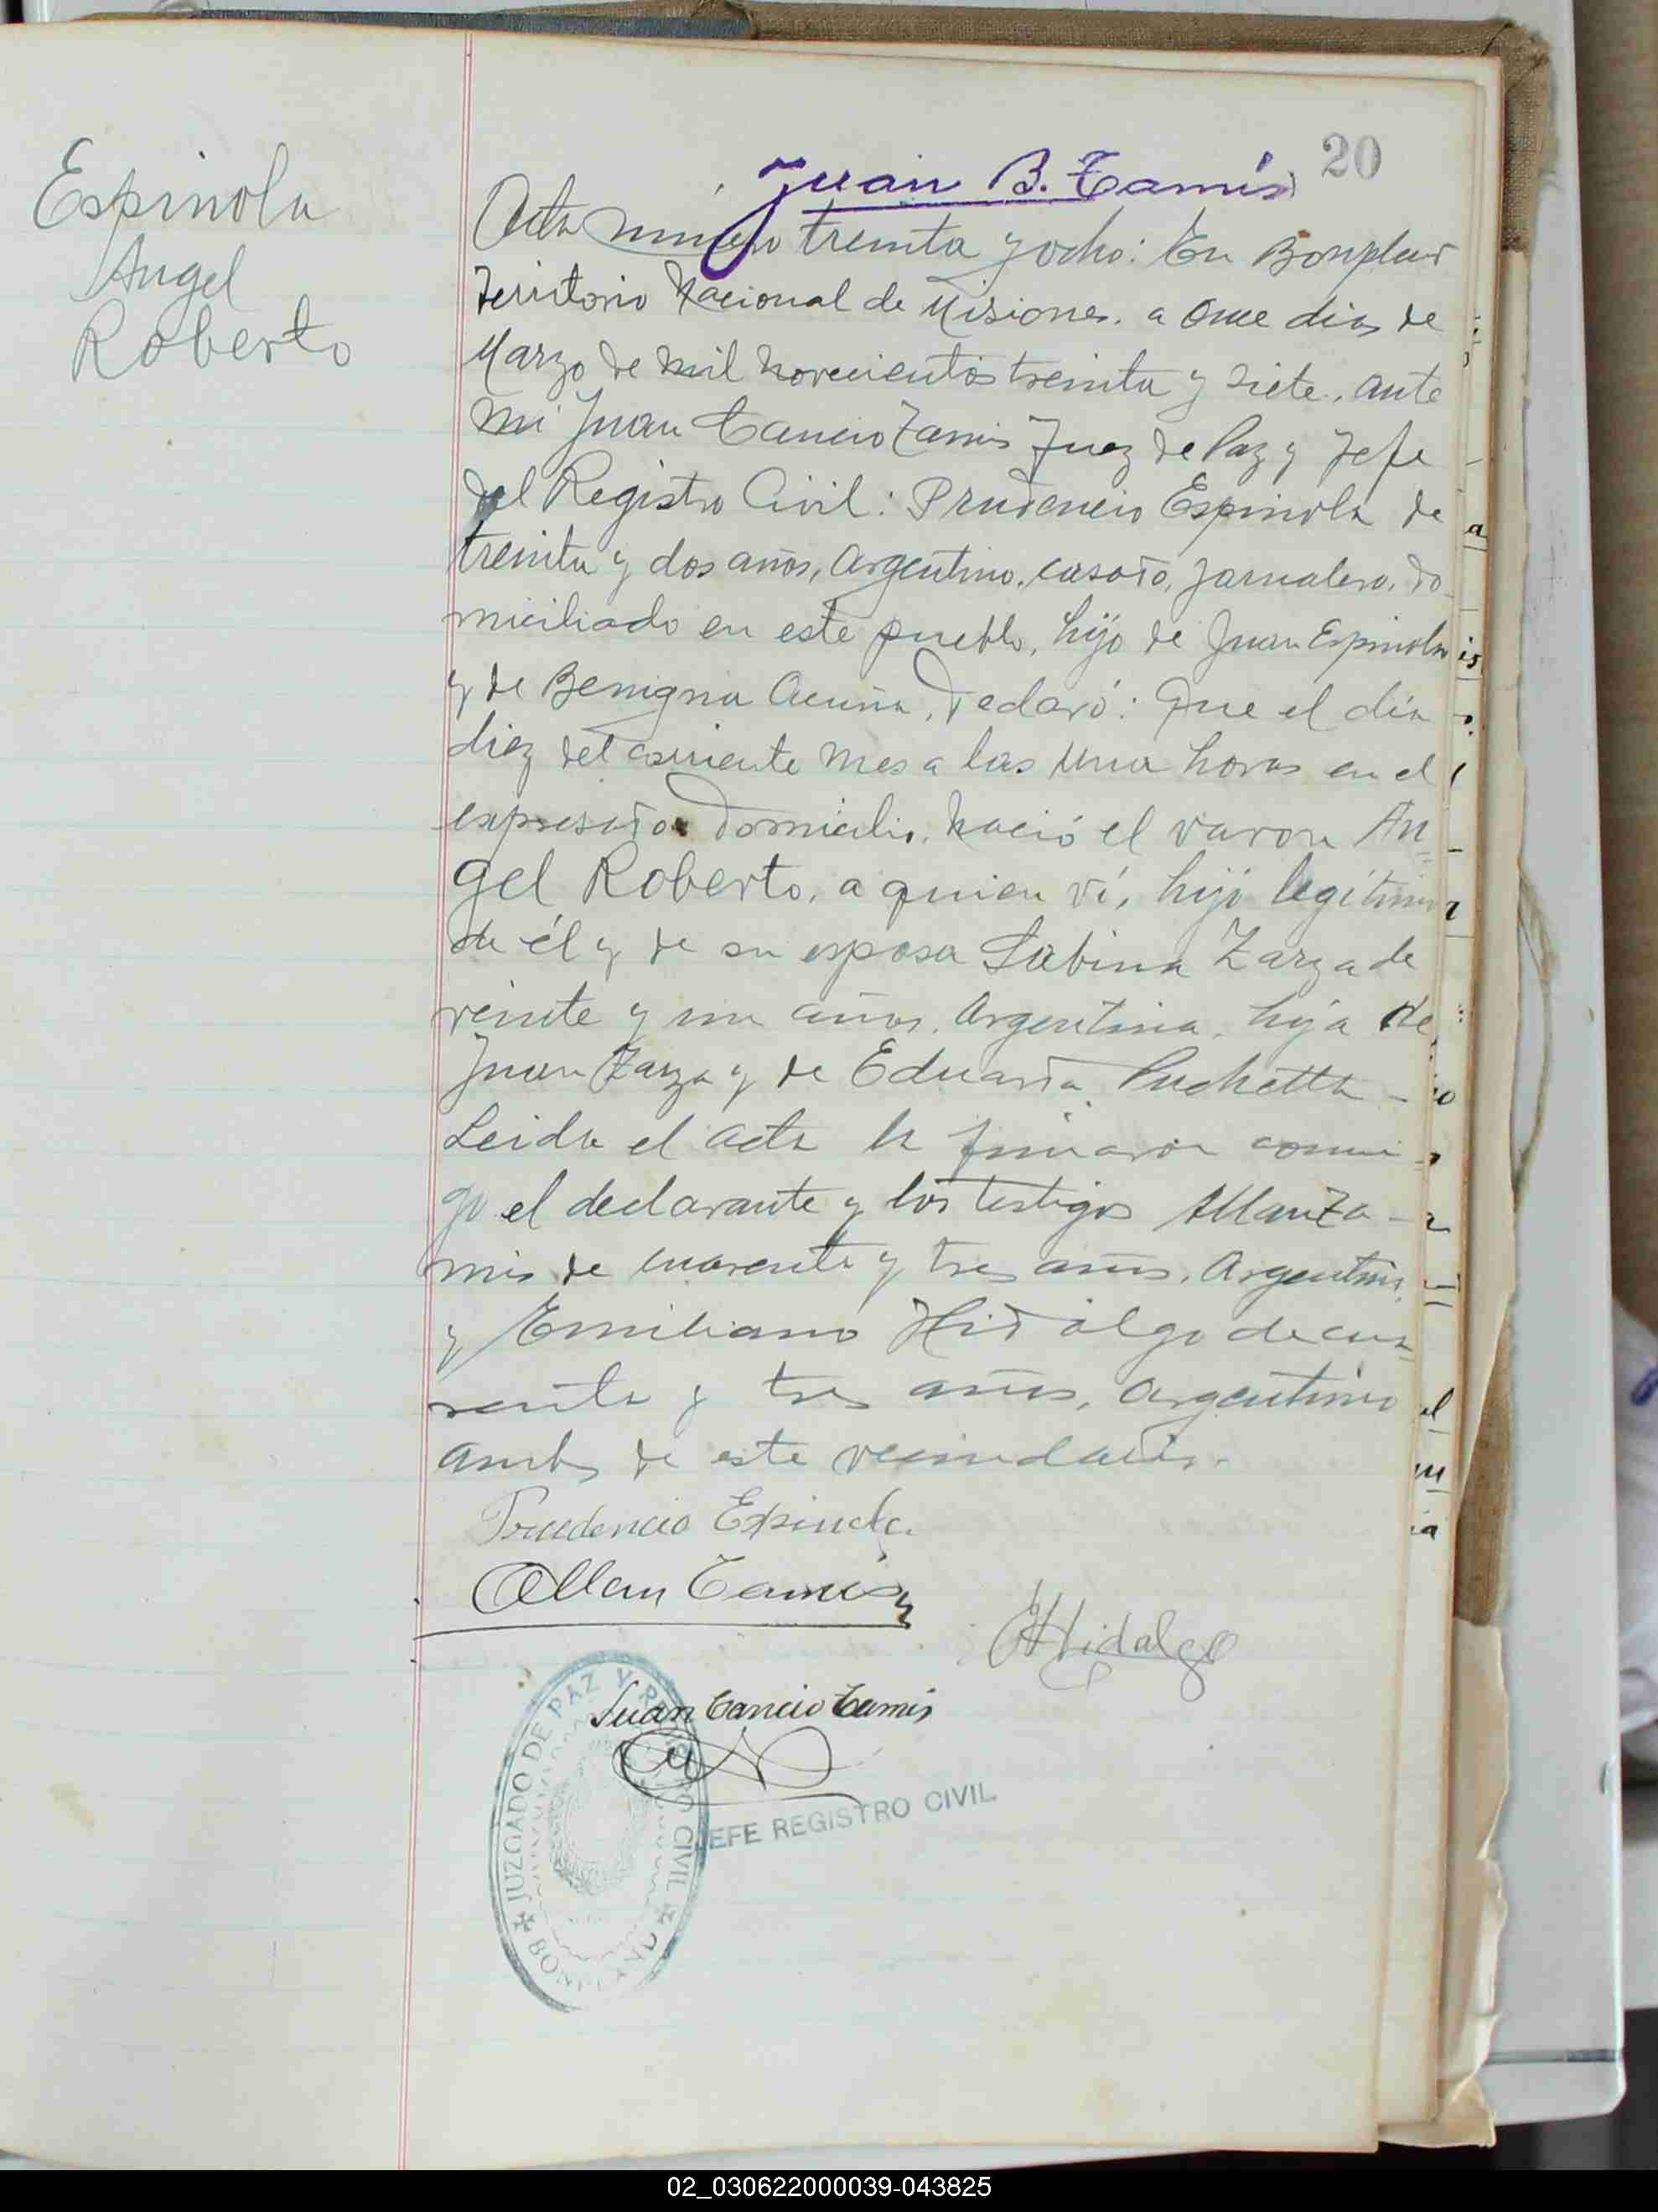 Espinola
Angel
Roberto
20
Juan B. Tamis
Acta número treinta y ocho: En Bonpland
Territorio Nacional de Misiones, a once dias de
Marzo de mil novecientos treinta y siete, ante
mi Juan Cancio Tamis Juez de Paz y Jefe
del Registro Civil: Prudencio Espinola de
treinta y dos años, argentino, casado, jornalero, do
miciliado en este pueblo, hijo de Juan Espinola
y de Benigna Acuña, declaró: Que el día
diez del corriente mes a las una horas en el
expresado domicilio, nació el varon An-
gel Roberto, a quien ví, hijo legítimo
de él y de su esposa Sabina Zarza de
veinte y un años, argentina, hija de
Juan Zarza y de Eduarda Puchetta -
Leida el acta la firmaron conmi-
go el declarante y los testigos Allan Ta-
mis de cuarenta y tres años, argentino,
y Emiliano Hidalgo de cua-
renta y tres años, argentino
ambos de este vecindario.
Prudencio Espinola.
Allan Tamis
EHidalgo
Juan Cancio Tamis
JUZGADO DE PAZ Y REGISTRO CIVIL
JEFE REGISTRO CIVIL
02_030622000039-043825